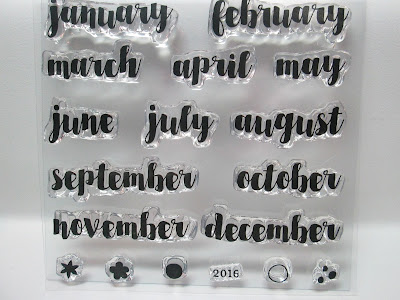 january february
march april may
june july august
september october
november december
2016